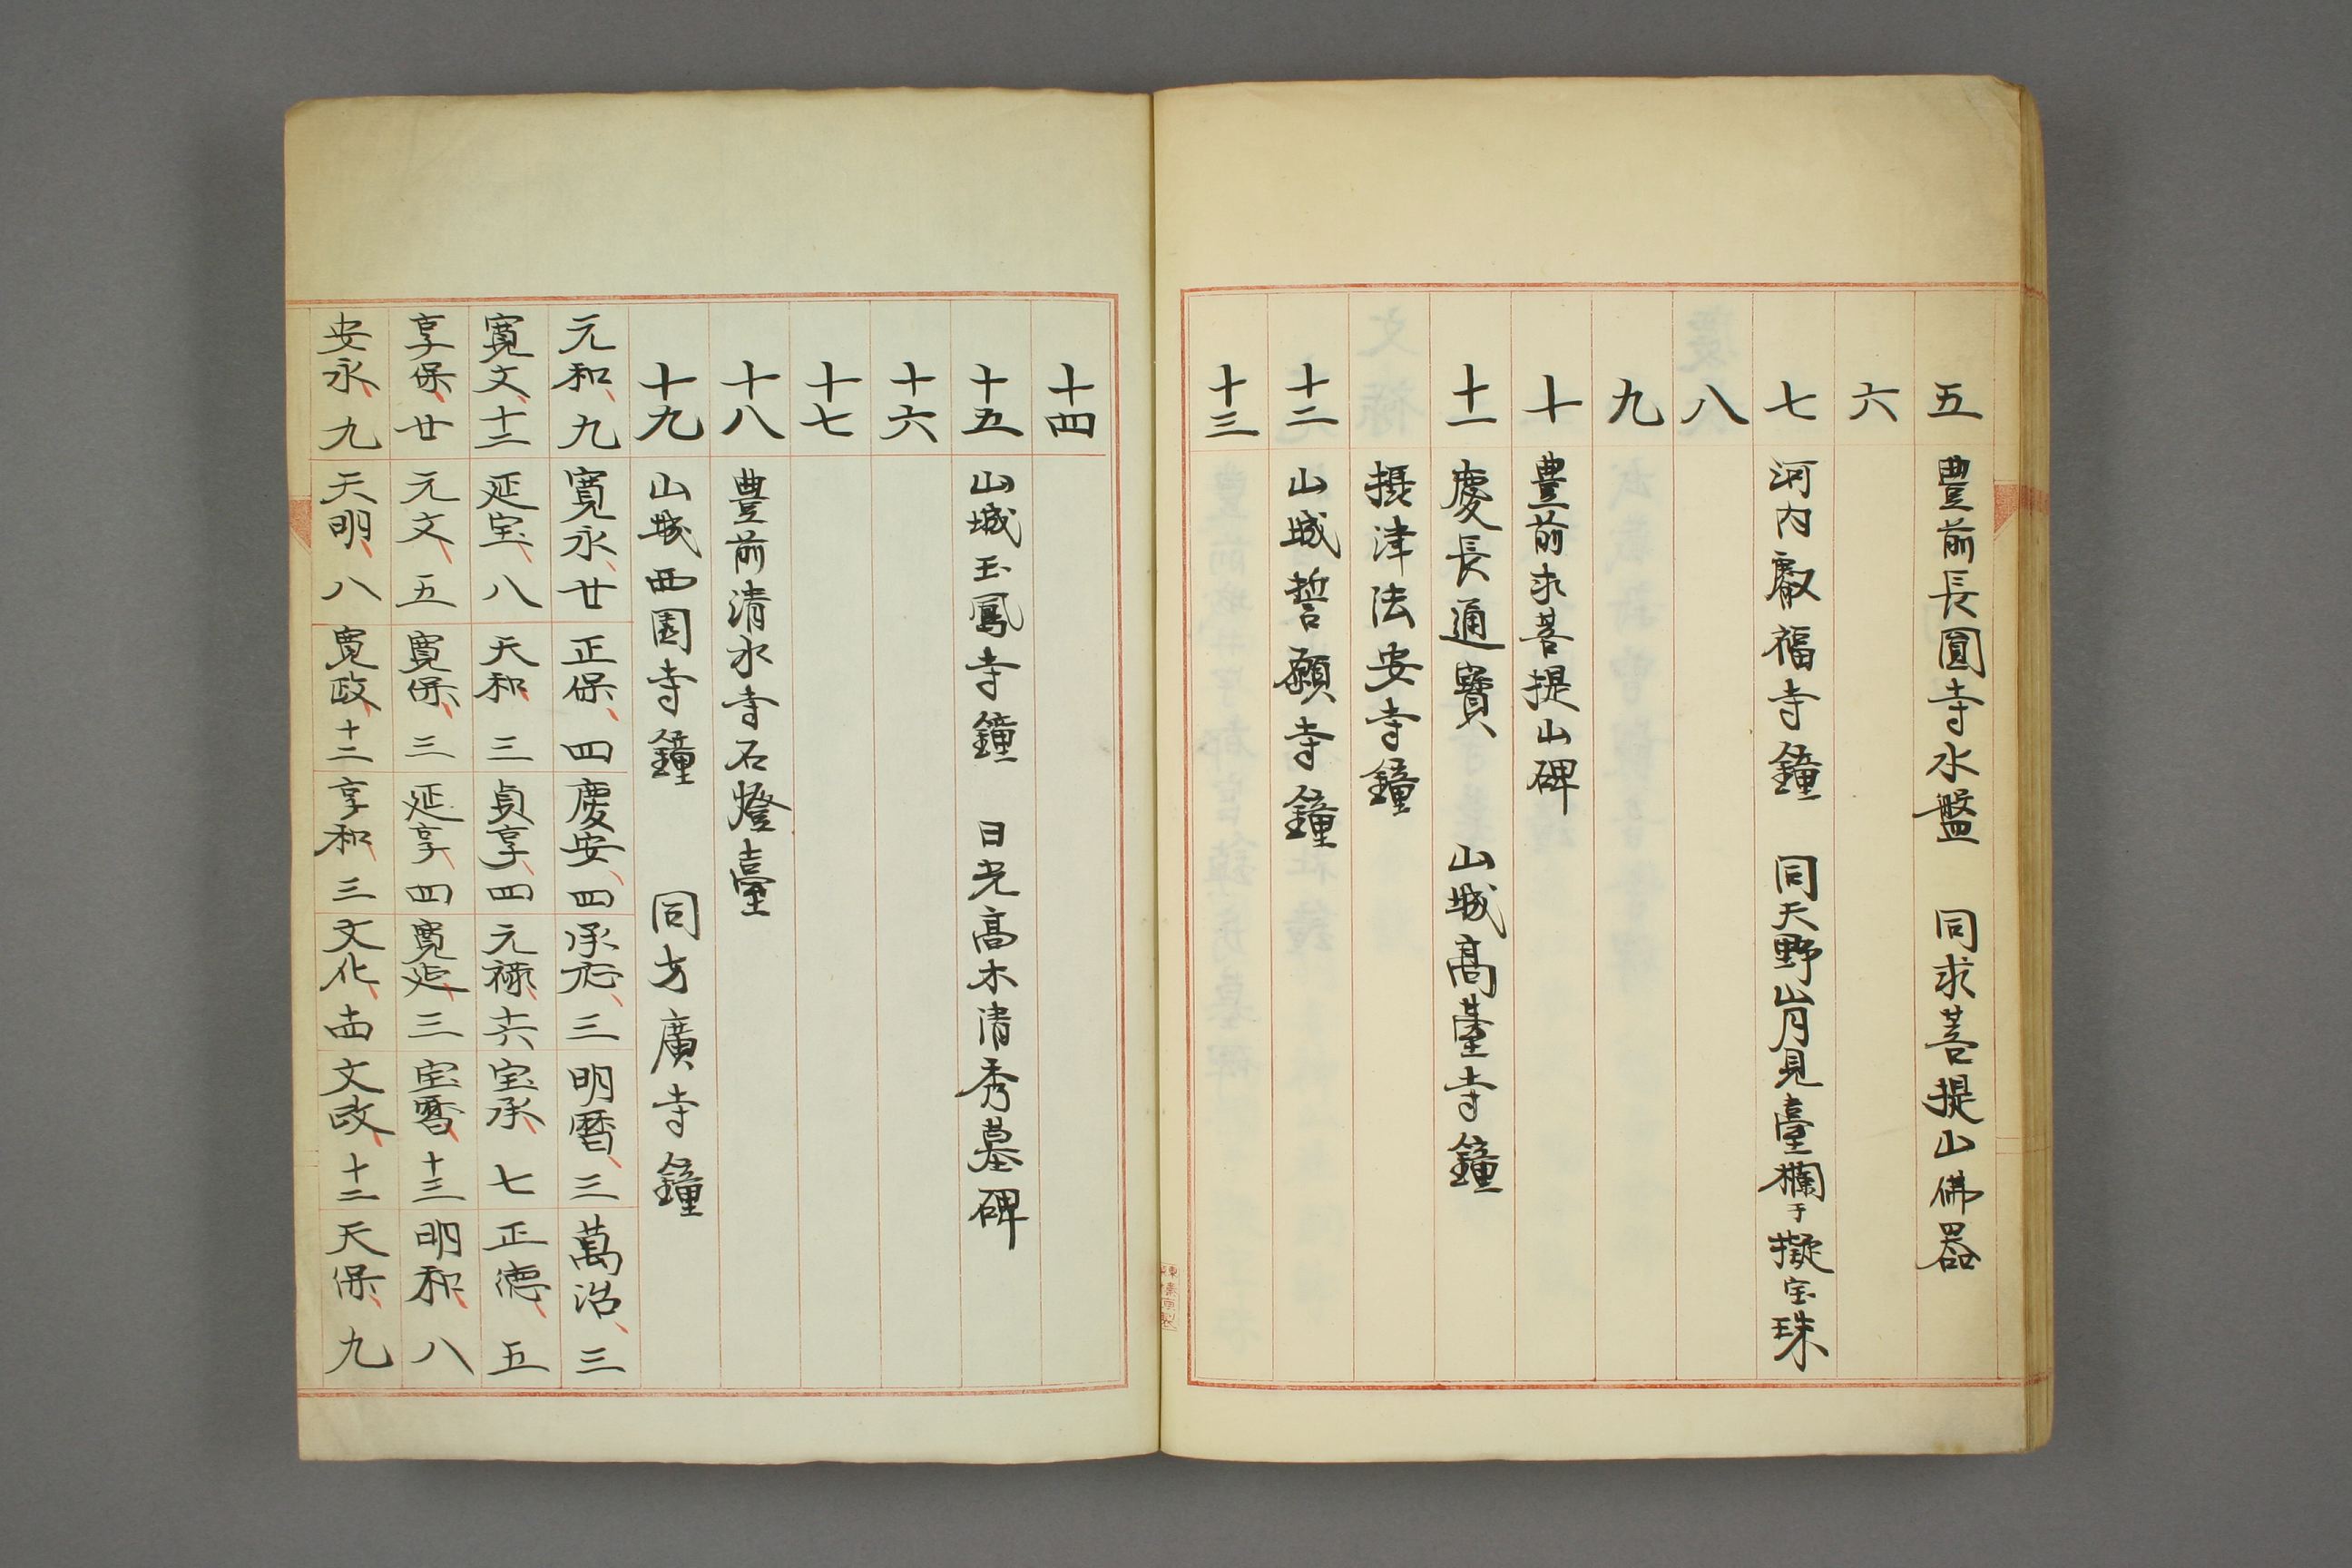 五 豊前長圓寺水盤 同求菩提山佛器
六
七 河内叡福寺鐘 同天野山月見臺欄于擬宝珠
八
九
十 豊前求菩提山碑
十一 慶長通寶 山城高臺寺鐘
摂津法安寺鐘
十二 山城誓願寺鐘
十三
十四
十五 山城玉鳳寺鐘 日光高木清秀墓碑
十六
十七
十八 豊前清水寺石燈臺
十九 山城西園寺鐘 同方廣寺鐘
元和、九 寛永、廿 正保、四 慶安、四 承応、三 明暦、三 萬治、三
寛文、十二 延宝、八 天和、三 貞享、四 元禄、十六 宝承、七 正徳、五
享保、廿 元文、五 寛保、三 延享、四 寛延、三 宝暦、十三 明和、八
安永、九 天明、八 寛政、十二 享和、三 文化、十四 文政、十二 天保、九